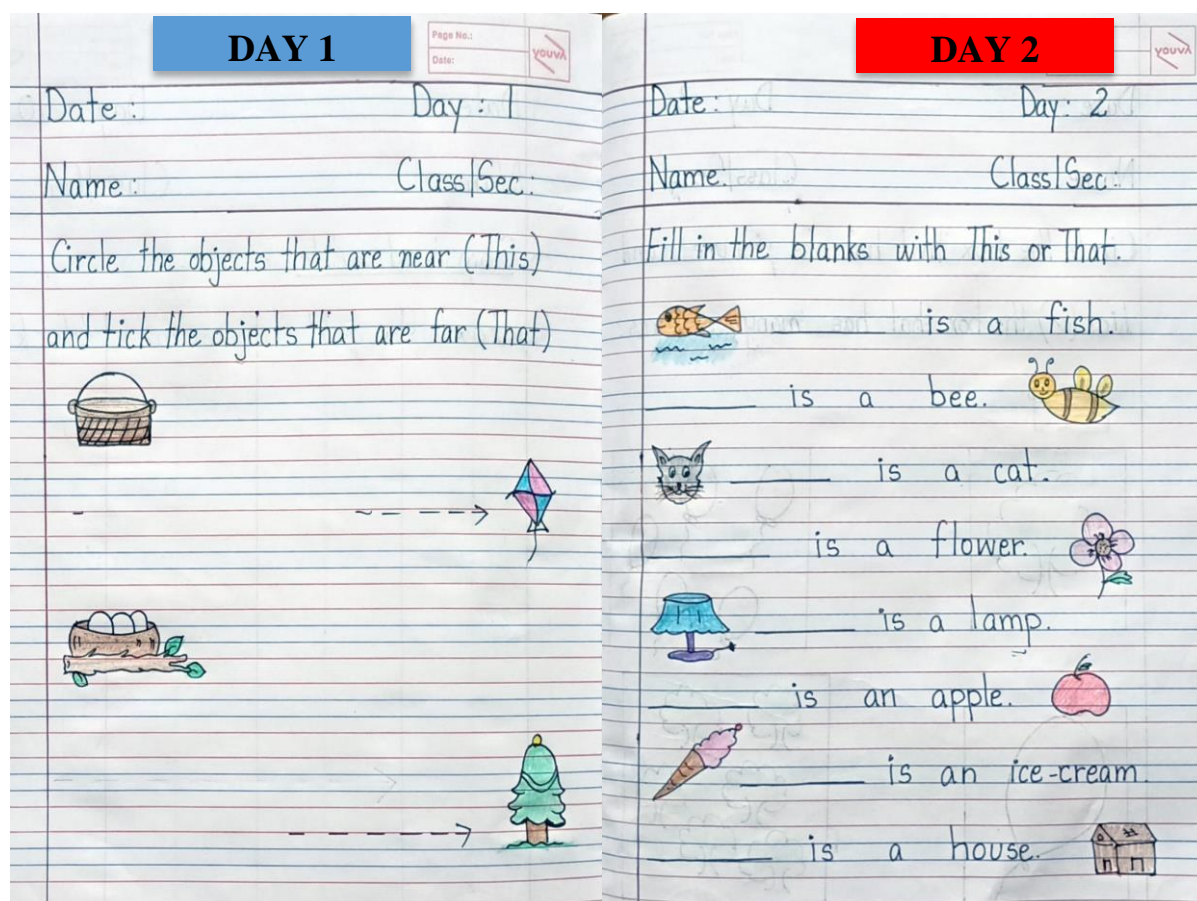 DAY 1
Page No.:
Date:
youva
Date :
Day : 1
Name :
Class|Sec :
Circle the objects that are near (This)
and tick the objects that are far (That)
DAY 2
youva
Date :
Day : 2
Name.
Class|Sec :
Fill in the blanks with This or That.
is a fish.
_______ is a bee.
_______ is a cat.
_______ is a flower.
_______ is a lamp.
_______ is an apple.
_______ is an ice-cream.
_______ is a house.